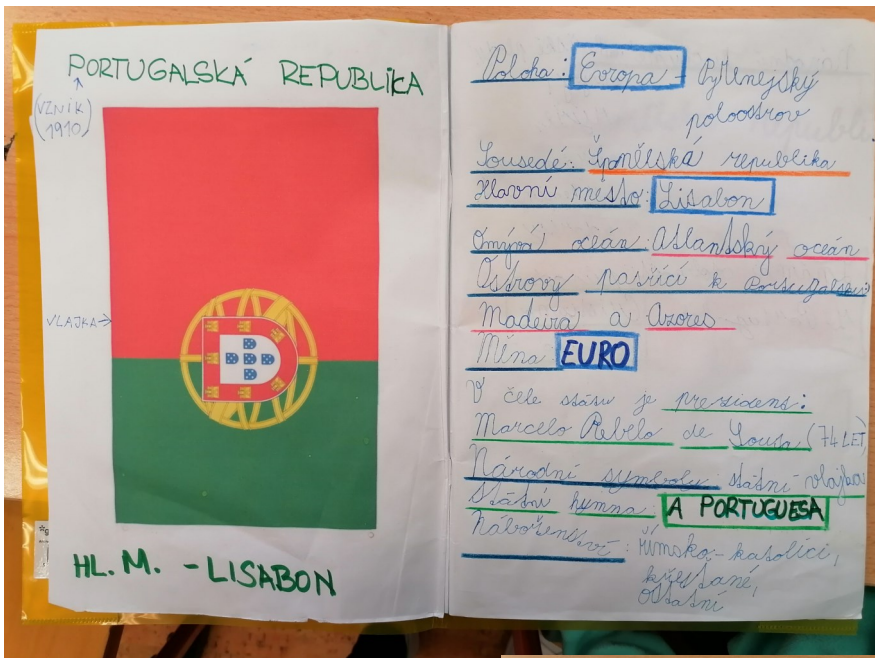 PORTUGALSKÁ REPUBLIKA
(VZNIK
1910)
VLAJKA→
HL. M. - LISABON
Poloha: Evropa - Pyrenejský
poloostrov
Sousedé: Španělská republika
Hlavní město: Lisabon
Omývá oceán: Atlantský oceán
Ostrovy patřící k Portugalsku:
Madeira a Azores
Měna EURO
V čele státu je prezident:
Marcelo Rebelo de Sousa (74 LET)
Národní symboly: státní vlajka
Státní hymna: A PORTUGUESA
Náboženství: Římsko-katolíci,
křesťané,
ostatní